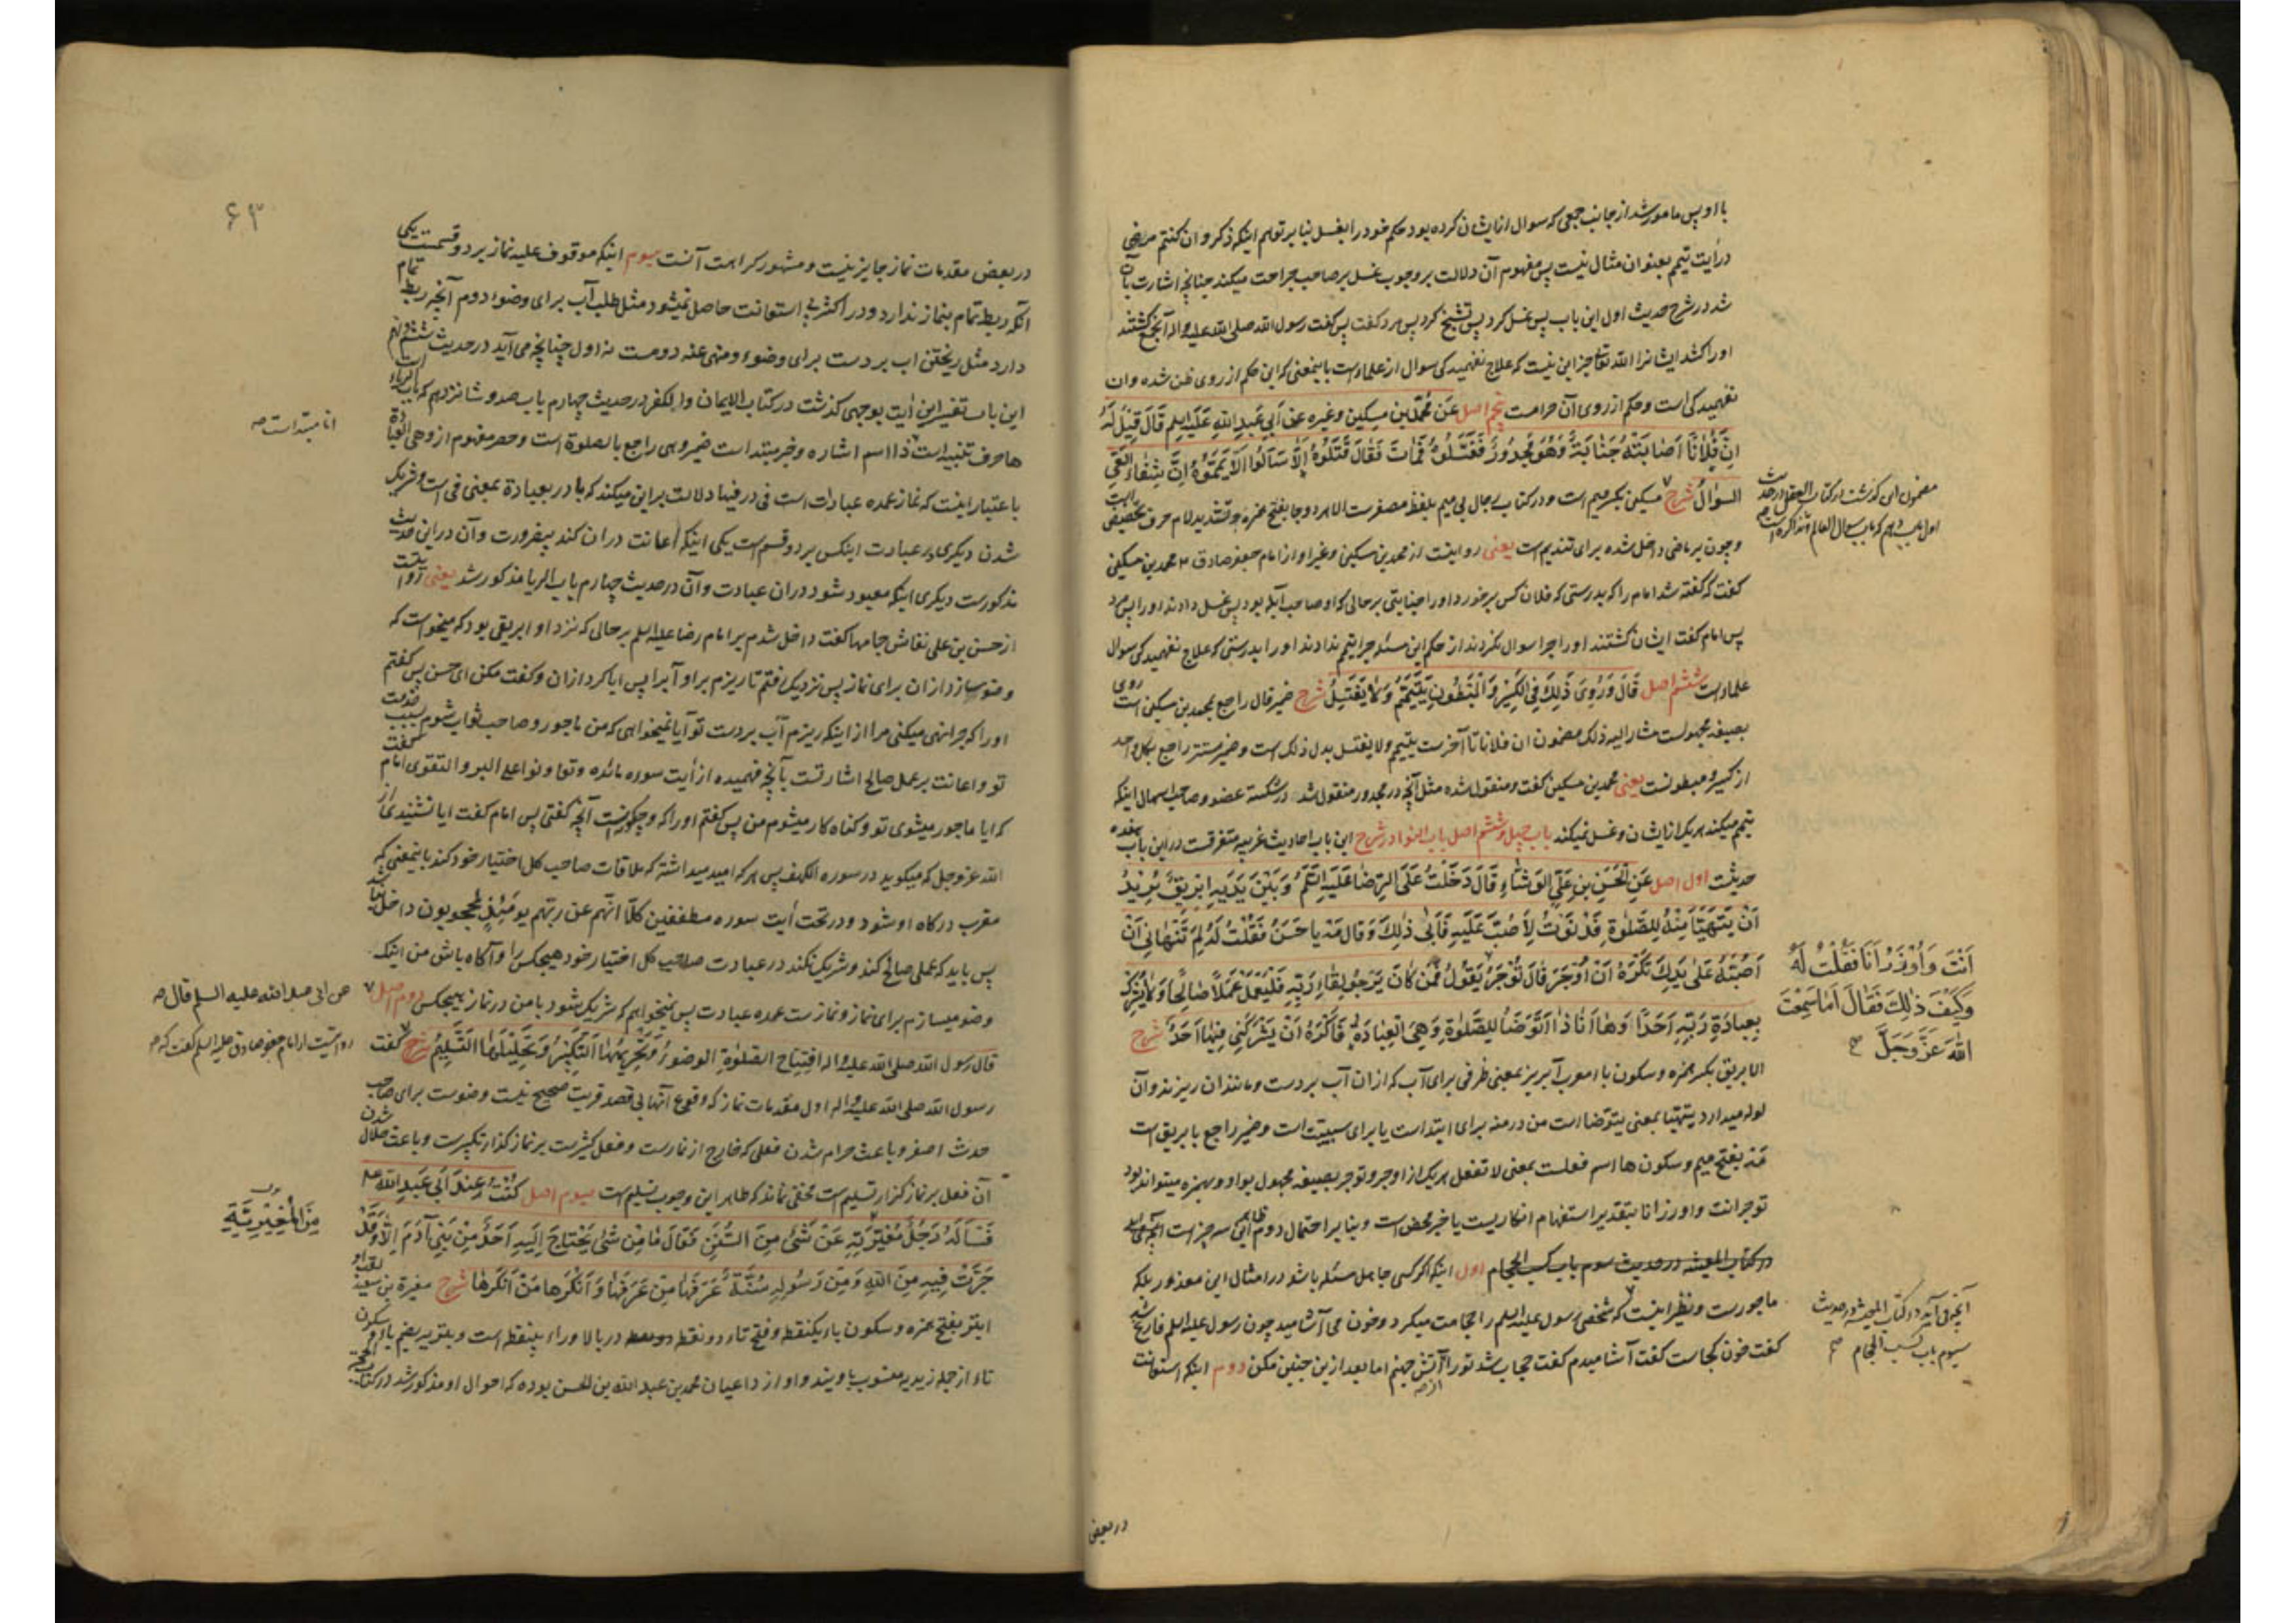 با او پس مامور شد از جانب جمعی که سوال از ایشان کرده بود حکم خود را بغسل بنا بر توهم اینکه ذکر وان کنتم مرضی
در آیت تیمم بعنوان مثال نیست پس مفهوم آن دلالت بر وجوب غسل بر صاحب جراحت میکند چنانچه اشارت بآن
شد در شرح حدیث اول این باب پس غسل کرد پس تشنج کرد پس مرد کفت پس کفت رسول الله صلی الله علیه واله آنجمع کشتند
او را کشد ایشانرا الله تعالی جز این نیست که علاج نفهمیدگی سوال از علماست باینمعنی که این حکم از روی ظن شده وان
نفهمیدگی است و حکم از روی آن حرامست پنجم اصل عَن مُحَمَّدِ بن مِسکین وغیره عن اَبی عَبدِ اللهِ عَلَیهِ السلم قَالَ قِیلَ لَهُ
اِنَّ فُلَانًا اَصَابَتهُ جَنَابَةٌ وَهُوَ مَجدُورٌ فَغَسَّلُوهُ فَمَاتَ فَقَالَ قَتَلُوهُ اَلَّا سَاَلُوا اَلَّا یَمَّمُوهُ اِنَّ شِفَاءَ العِیِّ
السؤالُ شرح مسکین بکسر میم است ودر کتاب رجال بی میم بلفظ مصغرست الا هر دو جا بفتح همزه و تشدید لام حرف تحضیض است
وچون بر ماضی داخل شده برای تندیم است یعنی روایت از محمد بن مسکین وغیر او از امام جعفر صادق ع محمد بن مسکین
کفت که کفته شد امام را که بدرستی که فلان کس برخورد او را جنابتی بر حالی که او صاحب آبله بود پس غسل دادند او را پس مرد
پس امام کفت ایشان کشتند او را چرا سوال نکردند از حکم این مسئله چرا تیمم ندادند او را بدرستی که علاج نفهمیدگی سوال
علماست ششم اصل قَالَ وَرُوِیَ ذَلِکَ فِی الکَسِیرِ وَالمَبطُونِ یَتَیَمَّمُ وَلَا یَغتَسِلُ شرح ضمیر قال راجع بمحمد بن مسکین است روی
بصیغه مجهولست مشار الیه ذلک مضمون ان فلانا تا آخرست یتیمم ولا یغتسل بدل ذلک است وضمیر مستتر راجع بکل واحد
از کسیر و مبطونست یعنی محمد بن مسکین کفت ومنقول شده مثل آنچه در مجدور منقول شد در شکسته عضو وصاحب اسهال اینکه
تیمم میکند هر یک از ایشان وغسل نمیکند باب چهل وششم اصل باب النوادر شرح این باب احادیث غریبه متفرقست در این باب هفده
حدیثست اول اصل عَنِ الحَسَنِ بنِ عَلِیٍّ الوَشَّاءِ قَالَ دَخَلتُ عَلَی الرِّضَا عَلَیهِ السَّلَمُ وَبَینَ یَدَیهِ اِبرِیقٌ یُرِیدُ
اَن یَتَهَیَّاَ مِنهُ لِلصَّلٰوةِ فَدَنَوتُ لِاَصُبَّ عَلَیهِ فَاَبَی ذٰلِکَ وَقَالَ مَه یَا حَسَنُ فَقُلتُ لَهُ لِمَ تَنهَانِی اَن
اَصُبَّهُ عَلَی یَدِکَ تَکرَهُ اَن اُوجَرَ قَالَ تُؤجَرُ یَقُولُ فَمَن کَانَ یَرجُو لِقَاءَ رَبِّهِ فَلیَعمَل عَمَلًا صَالِحًا وَلَا یُشرِک
بِعِبَادَةِ رَبِّهِ اَحَدًا وَهَا اَنَا ذَا اَتَوَضَّأُ لِلصَّلٰوةِ وَهِیَ العِبَادَةُ فَاَکرَهُ اَن یَشرَکَنِی فِیهَا اَحَدٌ شرح
الابریق بکسر همزه وسکون با معرب آبریز بمعنی ظرفی برای آب که از ان آب بر دست ومانند ان ریزند وآن
لوله میدارد یتهیا بمعنی یتوضا است من در منه برای ابتداست یا برای سببیت است وضمیر راجع بابریق است
مَه بفتح میم وسکون ها اسم فعلست بمعنی لا تفعل هر یک از اوجر وتوجر بصیغه مجهول بواو وبهمزه میتواند بود
توجر انت واوزر انا بتقدیر استفهام انکاریست یا خبر محض است وبنا بر احتمال دوم ظاهر این سه چیز است
در کتاب المعیشه در حدیث سوم باب کسب الحجام اول اینکه اکر کسی جاهل مسئله باشد در امثال این معذور بلکه
ماجورست ونظیر اینست که شخصی رسول علیه السلم را حجامت میکرد وخون می آشامید چون رسول علیه السلم فارغ شد
کفت خون کجاست کفت آشامیدم کفت حجاب شد تو را از آتش جهنم اما بعد ازین چنین مکن دوم اینکه استعانت
مضمون این کذشت در کتاب العقل در حدیث
اول باب دهم که باب سوال العالم وتذاکره است
اَنتَ وَاُوزَرُ اَنَا فَقُلتُ لَهُ
وَکَیفَ ذٰلِکَ فَقَالَ اَمَا سَمِعتَ
اللهَ عَزَّ وَجَلَّ
آنچه می آید در کتاب المعیشه در حدیث
سیوم باب کسب الحجام
در بعضی
۶۳
در بعض مقدمات نماز جایز نیست ومشهور کراهت آنست سیوم اینکه موقوف علیه نماز بر دو قسمست یکی
آنکه ربط تمام بنماز ندارد ودر اکثر بی استعانت حاصل نمیشود مثل طلب آب برای وضوء دوم آنچه ربط تمام
دارد مثل ریختن اب بر دست برای وضوء ومنهی عنه دومست نه اول چنانچه می آید در حدیث
این باب تفسیر این آیت بوجهی کذشت در کتاب الایمان والکفر در حدیث چهارم باب صد وشانزدهم که باب الریاء است
ها حرف تنبیه است ذا اسم اشاره وخبر مبتداست ضمیر وهی راجع بالصلوة است وحصر مفهوم از وهی العبادة
باعتبار اینست که نماز عمده عبادات است فی در فیها دلالت بر این میکند که با در بعبادة بمعنی فی است وشریک
شدن دیگری در عبادت اینکس بر دو قسم است یکی اینکه اعانت در ان کند بیضرورت وآن در این حدیث
مذکورست دیکری اینکه معبود شود در ان عبادت وآن در حدیث چهارم باب الریا مذکور شد یعنی روایتست
از حسن بن علی نقاش جامها کفت داخل شدم بر امام رضا علیه السلم بر حالی که نزد او ابریقی بود که میخواست که
وضو سازد از ان برای نماز پس نزدیک رفتم تا ریزم بر او آب را پس ابا کرد از ان وکفت مکن ای حسن پس کفتم
او را که چرا نهی میکنی مرا از اینکه ریزم آب بر دست تو آیا نمیخواهی که من ماجور وصاحب ثواب شوم بسبب خدمت
تو واعانت بر عمل صالح اشارتست بآنچه فهمیده از آیت سوره مائده وتعاونوا علی البر والتقوی امام کفت
که ایا ماجور میشوی تو وکناه کار میشوم من پس کفتم او را که وچکونست آنچه کفتی پس امام کفت ایا نشنیدی از
الله عز وجل که میکوید در سوره الکهف پس هر که امید میداشته که ملاقات صاحب کل اختیار خود کند باینمعنی که
مقرب درکاه او شود ودر تحت آیت سوره مطففین کلّا انّهم عن ربّهم یومئذٍ لمحجوبون داخل نباشد
پس باید که عملی صالح کند وشریک نکند در عبادت صاحب کل اختیار خود هیچکس را وآگاه باش من اینک
وضو میسازم برای نماز ونمازست عمده عبادت پس نمیخواهم که شریک شود با من در نماز هیچکس دوم اصل
قال رسول الله صلی الله علیه واله اِفتِتَاحُ الصَّلٰوةِ الوضوءُ وَتَحرِیمُهَا التَّکبِیرُ وَتَحلِیلُهَا التَّسلِیمُ شرح کفت
رسول الله صلی الله علیه واله اول مقدمات نماز که وقوع آنها بی قصد قربت صحیح نیست وضوست برای صاحب
حدث اصغر وباعث حرام شدن فعلی که خارج از نمازست وفعل کثیرست بر نماز کذار تکبیرست وباعث حلال شدن
آن فعل بر نماز کزار تسلیم است مخفی نماند که ظاهر این وجوب تسلیم است سیوم اصل کُنتُ عِندَ اَبی عَبدِ اللهِ علیه
فَسَاَلَهُ رَجُلٌ عَن شَیءٍ مِنَ السُّنَنِ فَقَالَ مَا مِن شَیءٍ یَحتَاجُ اِلَیهِ اَحَدٌ مِن بَنِی آدَمَ اِلَّا وَقَد
جَرَت فِیهِ مِنَ اللهِ وَمِن رَسُولِهِ سُنَّةٌ عَرَفَهَا مَن عَرَفَهَا وَاَنکَرَهَا مَن اَنکَرَهَا شرح مغیرة بن سعید
ابتر بفتح همزه وسکون با یکنقطه وفتح تاء دو نقطه در بالا وراء بینقطه است وبتریه بضم با وسکون
تاء از جمله زیدیه منسوب باویند واو از داعیان محمد بن عبد الله بن الحسن بوده که احوال او مذکور شد در کتاب الحجة
انا مبتداست
عن ابی عبد الله علیه السلم قال
روایتست از امام جعفر صادق علیه السلم کفت که
مِنَ المُغِیرِیَّةِ